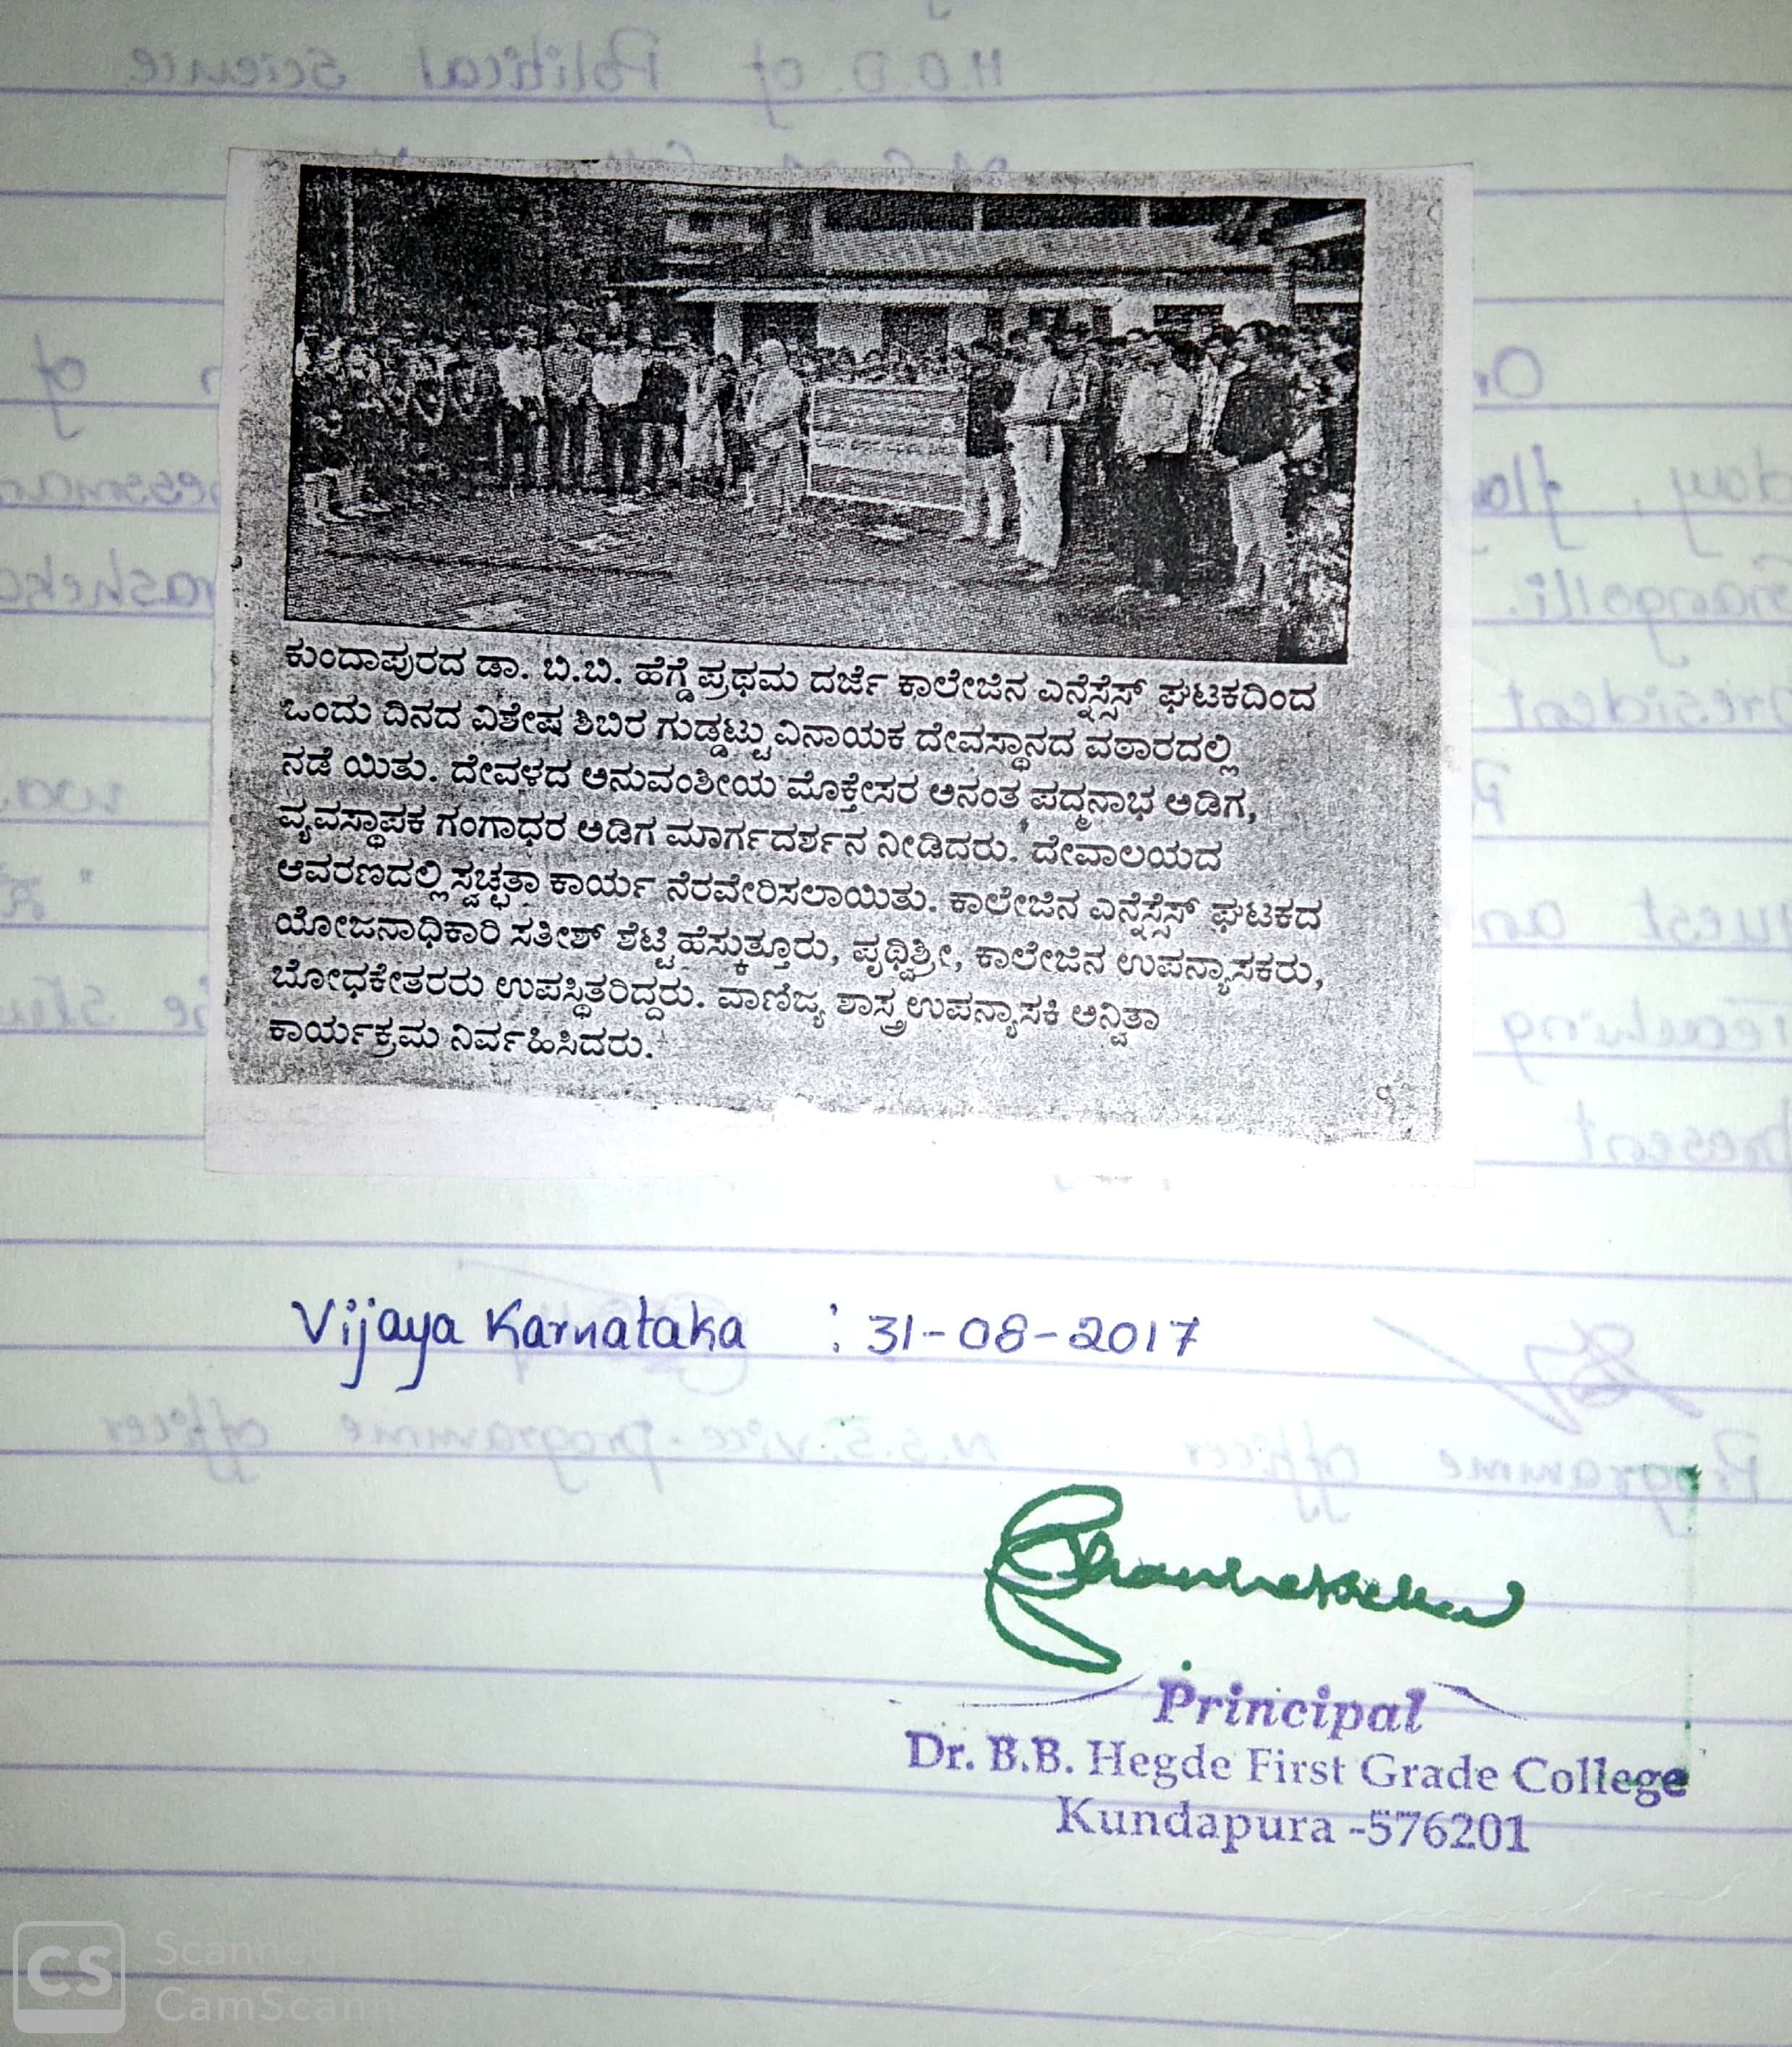 ಕುಂದಾಪುರದ ಡಾ. ಬಿ.ಬಿ. ಹೆಗ್ಡೆ ಪ್ರಥಮ ದರ್ಜೆ ಕಾಲೇಜಿನ ಎನ್ನೆಸ್ಸೆಸ್ ಘಟಕದಿಂದ
ಒಂದು ದಿನದ ವಿಶೇಷ ಶಿಬಿರ ಗುಡ್ಡಟ್ಟು ವಿನಾಯಕ ದೇವಸ್ಥಾನದ ವಠಾರದಲ್ಲಿ
ನಡೆ ಯಿತು. ದೇವಳದ ಅನುವಂಶೀಯ ಮೊಕ್ತೇಸರ ಅನಂತ ಪದ್ಮನಾಭ ಅಡಿಗ,
ವ್ಯವಸ್ಥಾಪಕ ಗಂಗಾಧರ ಅಡಿಗ ಮಾರ್ಗದರ್ಶನ ನೀಡಿದರು. ದೇವಾಲಯದ
ಆವರಣದಲ್ಲಿ ಸ್ವಚ್ಛತಾ ಕಾರ್ಯ ನೆರವೇರಿಸಲಾಯಿತು. ಕಾಲೇಜಿನ ಎನ್ನೆಸ್ಸೆಸ್ ಘಟಕದ
ಯೋಜನಾಧಿಕಾರಿ ಸತೀಶ್ ಶೆಟ್ಟಿ ಹೆಸ್ಕುತ್ತೂರು, ಪೃಥ್ವಿಶ್ರೀ, ಕಾಲೇಜಿನ ಉಪನ್ಯಾಸಕರು,
ಬೋಧಕೇತರರು ಉಪಸ್ಥಿತರಿದ್ದರು. ವಾಣಿಜ್ಯ ಶಾಸ್ತ್ರ ಉಪನ್ಯಾಸಕಿ ಅನ್ವಿತಾ
ಕಾರ್ಯಕ್ರಮ ನಿರ್ವಹಿಸಿದರು.
Vijaya Karnataka : 31-08-2017
Principal
Dr. B.B. Hegde First Grade College
Kundapura -576201
CS Scanned
CamScanne